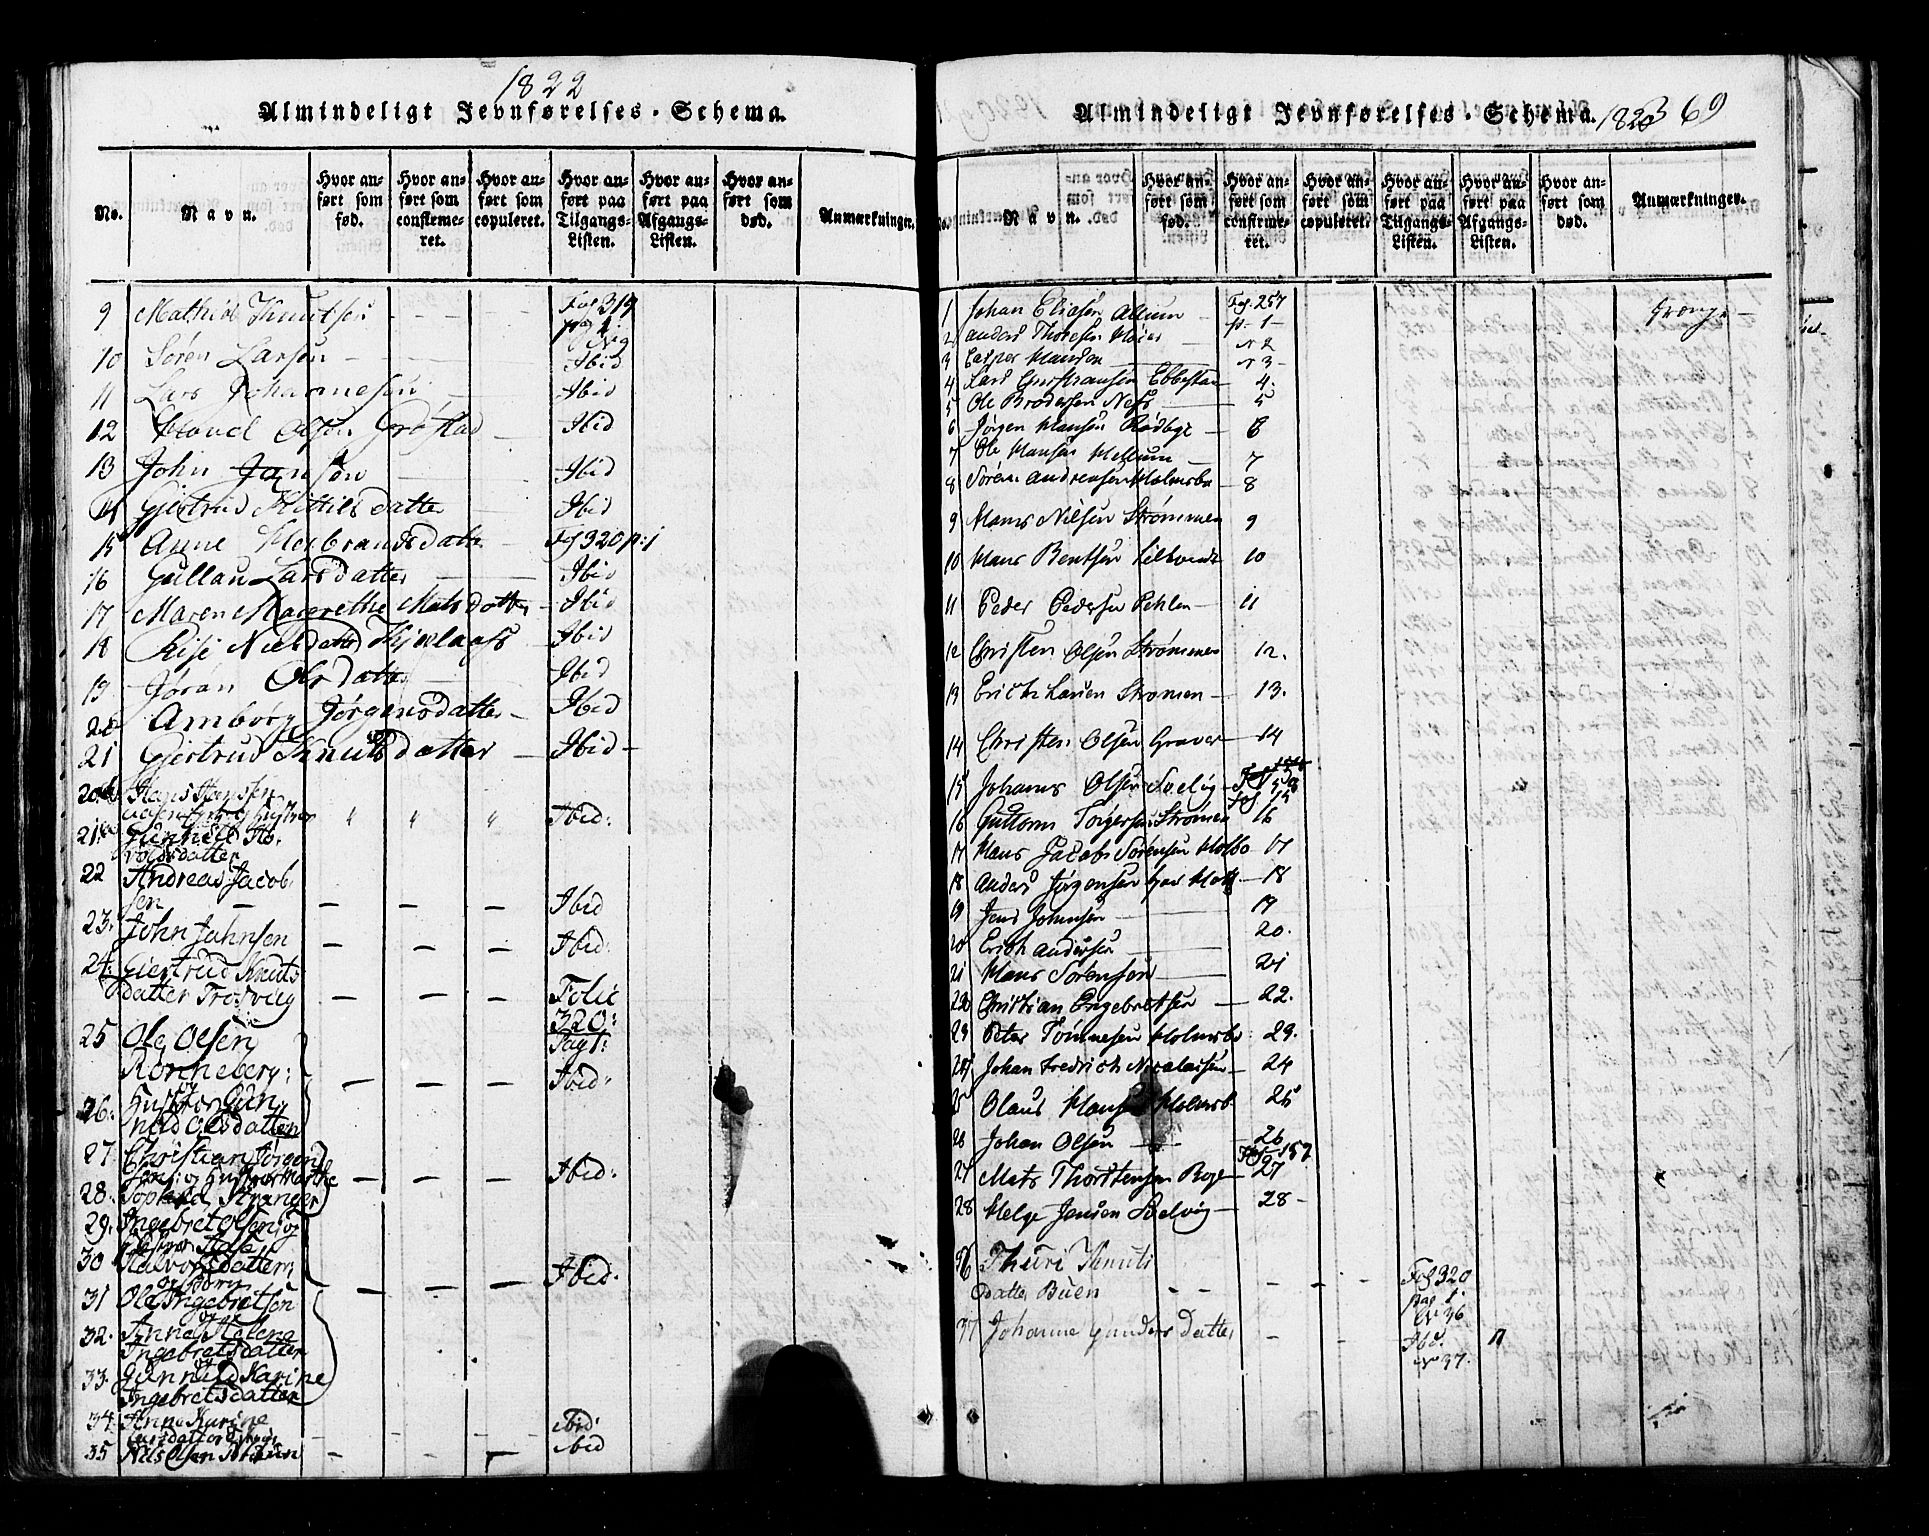 1822
Almindeligt Jevnførelses-Schema.
No. Navn. Hvor anført som fød. Hvor anført som confirmeret. Hvor anført som copuleret. Hvor anført paa Tilgangs-Listen. Hvor anført paa Afgangs-Listen. Hvor anført som død. Anmærkninger.
9 Mathias Knutsen Fol 319
pag 1
No 9
10 Søren Larsen Ibid
11 Lars Johannesen Ibid
12 Olsen Grøstad Ibid
13 John Jansen Ibid
14 Gjertrud Kittilsdatter Ibid
15 Anne Herbrandsdatter Fol 320 p: 1
16 Gullau Larsdatter Ibid
17 Maren Magrethe Matsdatter Ibid
18 Rise Nielsdatter Ibid
19 Jøran Olsdatter Ibid
20 Ambørg Jørgensdatter Ibid
21 Gjertrud Knutsdatter Ibid
20 Hans Hansen
og Hustroe " " " Ibid:
21 Gunhild
voldsdatter
22 Andreas Jacob
sen Ibid
23. John Johnsen Ibid:
24: Giertrud Knuts
datter Trosvieg Folie
320:
Pag 1:
25 Ole Olsen
Ronneberg:
og Ibid:
26: Hustroe Gun
nild Olsdatter
27. Christian Jørgen
sen: og Hustroe Marthe Ibid:
28. Stranger
29. Ingebret Olsen og
30 Halvorsdatter Ibid:
og børn
31 Ole Ingebretsen
og
32. Anne Helene
Ingebretsdatter
33. Gunnild Karine
Ingebretsdatter
34. Anne Karine ibid:
Larsdatter
35 Nils Olsen ibid
Almindeligt Jevnførelses-Schema. 1823 69
No. Navn. Hvor anført som fød. Hvor anført som confirmeret. Hvor anført som copuleret. Hvor anført paa Tilgangs-Listen. Hvor anført paa Afgangs-Listen. Hvor anført som død. Anmærkninger.
1 Johan Eliasen Allum Fol. 257
p. 1
2 Anders Thoresen Moier N 2
3 Casper Hansen N 3
4 Lars Christiansen Ebbestad 4.
5 Ole Brodersen Ness 5
6 Jørgen Hansen Rødbye 6
7 Ole Hansen Mellum 7
8 Søren Andreasen Holmsbo 8
9 Hans Nilsen Strømmen 9
10 Hans Bentsen 10
11 Peder Pedersen 11
12 Christen Olsen Strømmen 12.
13 Erich Larsen Strømen 13.
14 Christen Olsen Graver 14
15 Johanes Olsen Svelvig 15
16 Guttorm Torgersen Strømen 16
17 Hans Jacob Sørensen Holsbo 17
18 Anders Jørgensen 18
19 Jens Johnsen 19
20 Erich Andersen 20.
21 Hans Sørensen 21
22 Christian Engebretsen 22.
23 Peter Tønnesen Holmsbo 23.
24 Johan Fredrich Nicolaisen 24
25 Olaus Hansen Holmsb 25
26 Johan Olsen 26
Fol. 157
27 Mats Thorstensen Roge 27
28 Helge Jensen Svelvig 28
36 Thuri Knuts Fol 320
datter Buen pag 1.
N 36
37 Johanne Gundersdatter Ibd.
N 37.